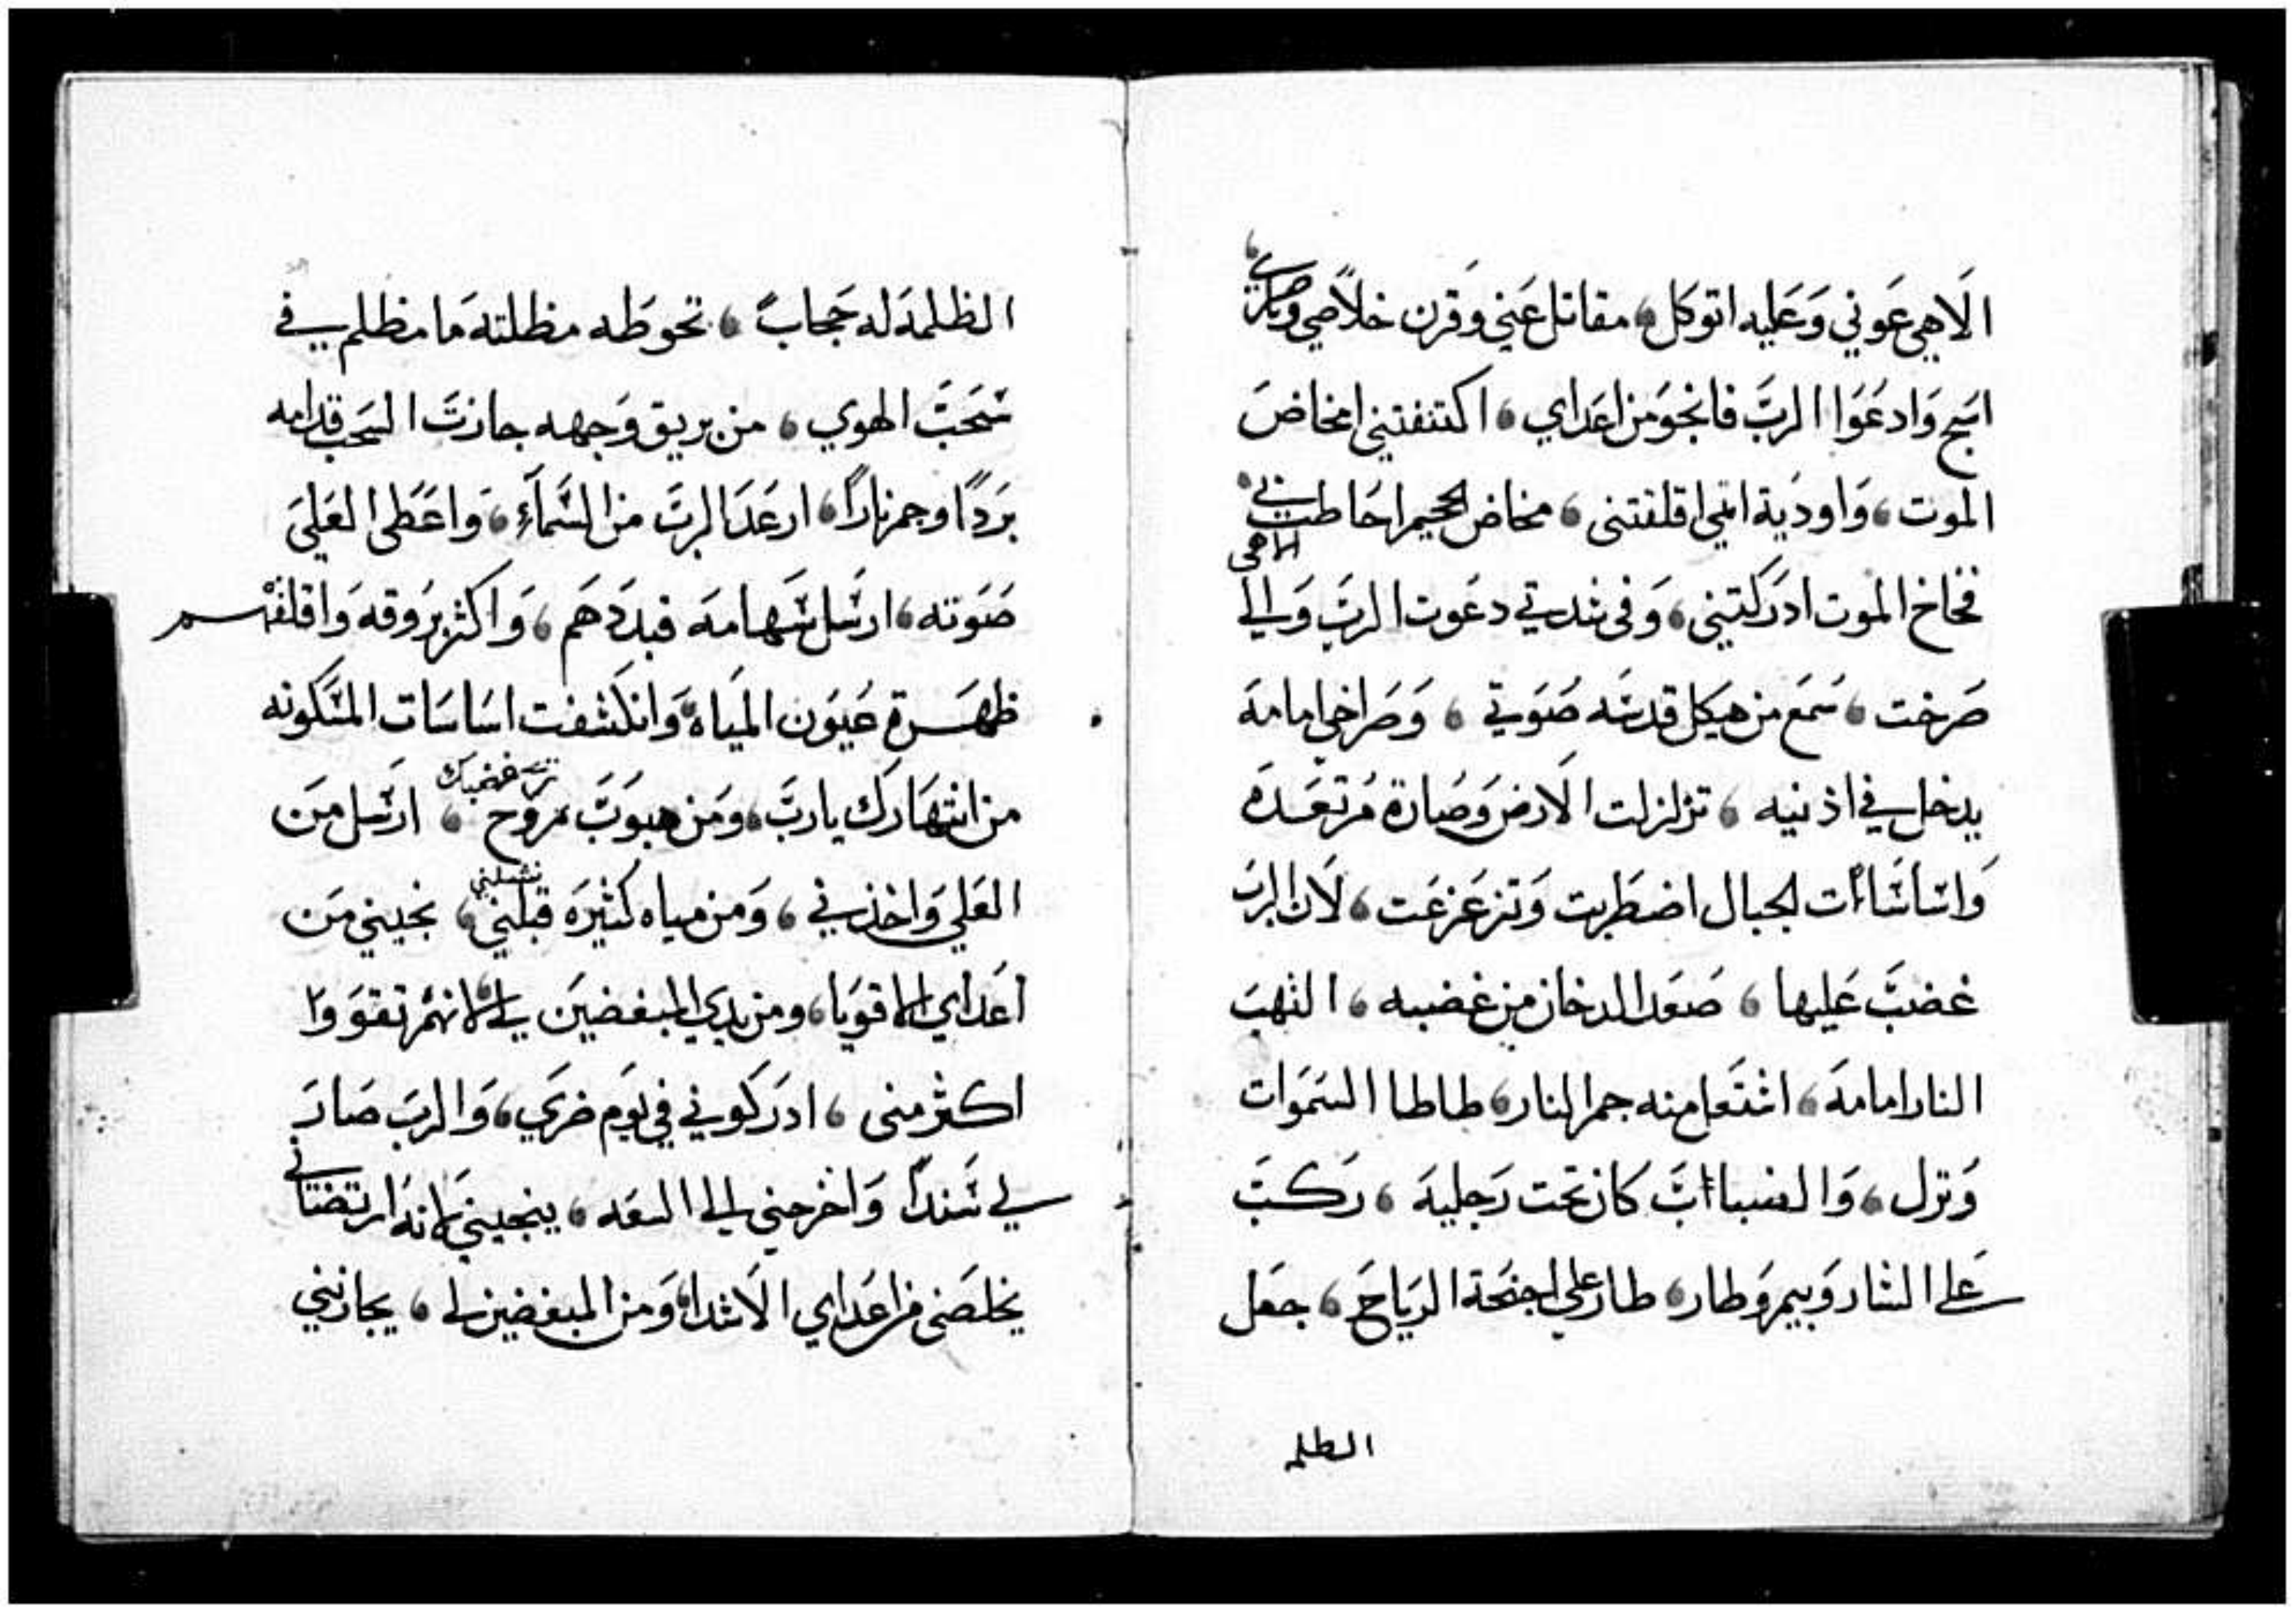 الَاهِي عَوني وَعَليه اتوكل، مقاتل عَني وَقرن خلاصي وناصري،
اسَبح وَادعَوا الربَّ فانجوَ من اعدَاي، اكتنفتني امخاضَ
الموت، وَاوديَة اثمي اقلقتنى، مخاض الجحيم احَاطت بي،
فخاخ الموت ادرَكتني، وَفى شدتي دعَوت الربَّ وَالي الاهى
صَرخت، سَمعَ من هيكل قدسَه صَوَتي، وَصَراخي امامهَ
يدخل في اذنيه، تزلزلت الَارضَ وَصَارة مُرتعَدَه
وَاسَاسَاات الجبال اضطَربت وَتزعَزعَت، لَان الربَ
غضبَّ عَليها، صَعَد الدخان من غضبه، التهبَ
النار امامهَ، اشتَعل منه جمر النار، طاطا السَمَوات
وَنزل، وَالضبااَبَّ كان تحت رَجليهَ، ركبَّ
عَلي الشاروَبيم وَطار، طار علي اجنحَة الريَاحَ، جعَل
الطلم
الظلمهَ له حَجابً، تحوطَه مظلتهَ مَا مظلم في
سَحَبَّ الهوي، من بريق وَجهه جازتَ السَحَب قدامه
برَدًا وجمر نارًا، ارعَدَ الربَّ من السَّمآءِ، وَاعَطَى العَليَ
صَوَته، ارسَل سَهامهَ فبدَدَهَم، وَاكثر برُوقه وَاقلقهم
ظهَرة عَيوَن الميَاه، وَانكَشفت اسَاسَات المسَكونه
من انتهَارَك ياربَّ، وَمَن هبوَبَّ روَح غضبك، ارسَل مَن
العَلي وَاخذني، وَمَن مياه كثيرَه قبلني نشلني، نجيني مَن
اعَداي الاقويَا، ومن يدي المبغضيَن لي، لانهُم تقوَوَا
اكثر منى، ادرَكوني في يوَم ضرَي، وَالربَ صَارَ
لي سَندًا وَاخرجني الي السَعَه، ينجيني لانهَ ارتضتاني
يخلصَنى من اعَداي الَاشدا، وَمن المبغضين لي، يجازنني